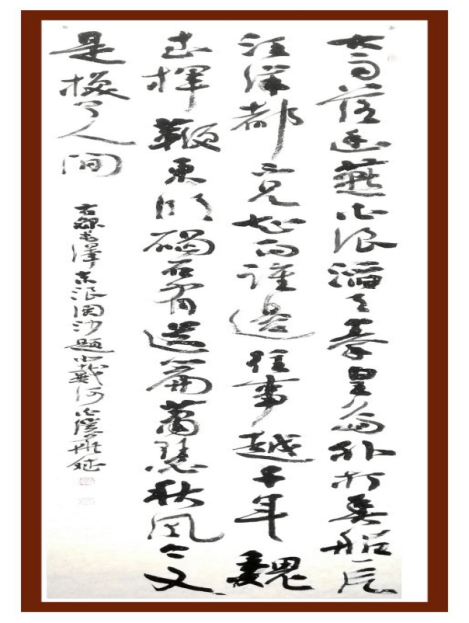 大雨落幽燕白浪滔天秦皇島外打魚船一片
汪洋都不見知向誰邊往事越千年魏
武揮鞭東臨碣石有遺篇蕭瑟秋風今又
是換了人間
右錄毛澤東浪淘沙題北戴河